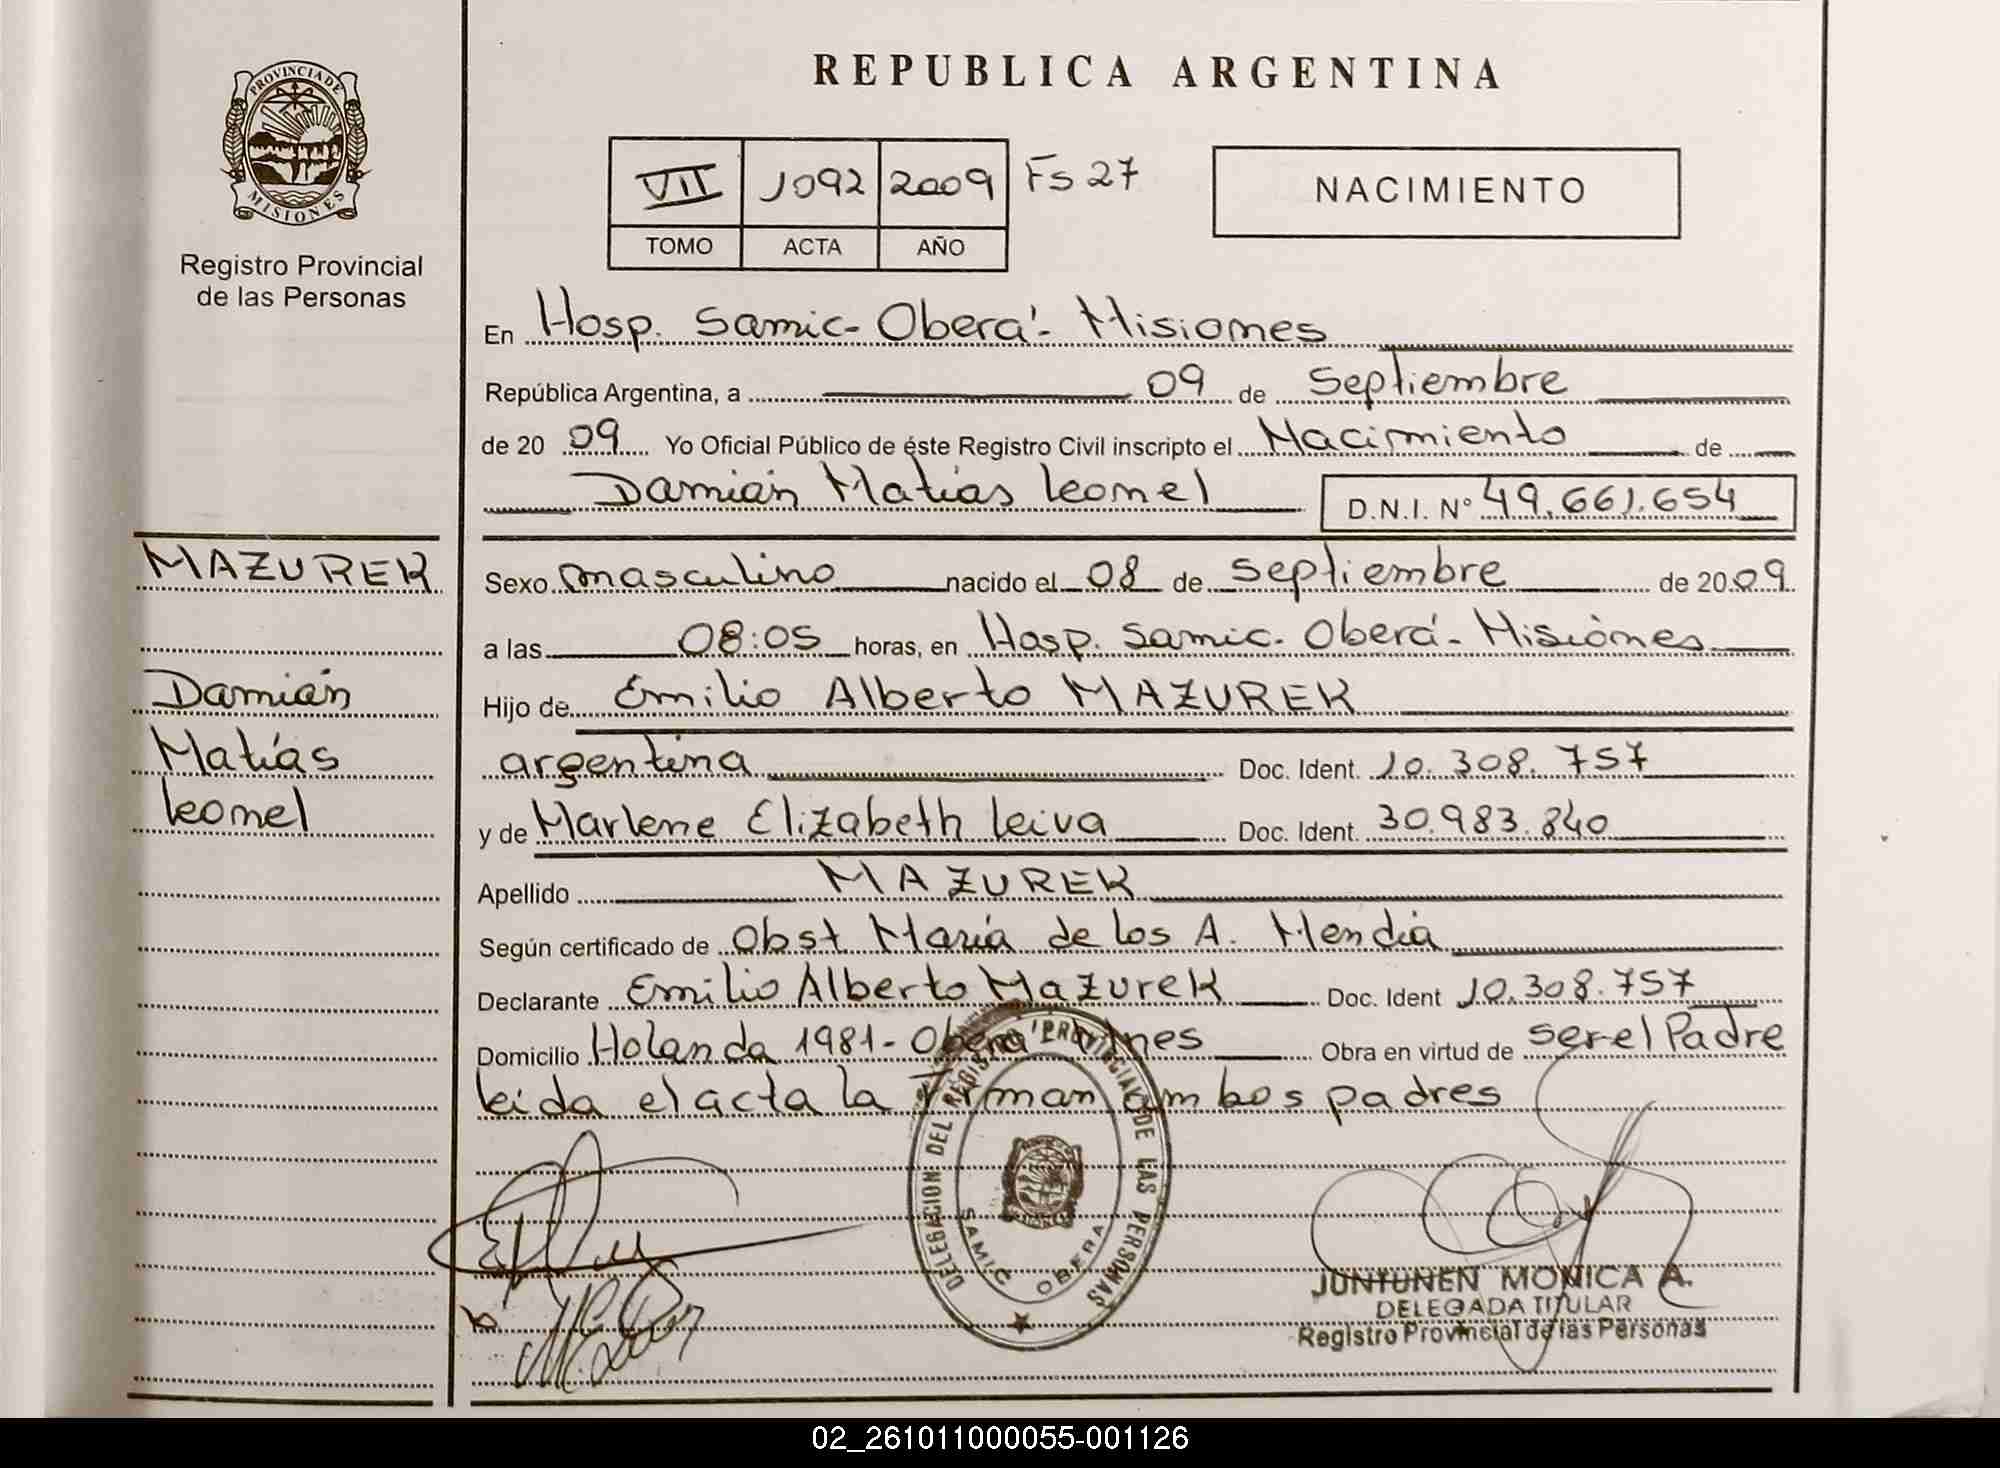 REPUBLICA ARGENTINA
PROVINCIA DE MISIONES
Registro Provincial
de las Personas
VII 1092 2009 Fs 27
TOMO ACTA AÑO
NACIMIENTO
En Hosp. Samic - Oberá - Misiones
República Argentina, a 09 de Septiembre
de 2009 Yo Oficial Público de éste Registro Civil inscripto el Nacimiento de
Damián Matías Leonel D.N.I. Nº 49.661.654
MAZUREK
Damián
Matías
Leonel
Sexo masculino nacido el 08 de Septiembre de 2009
a las 08:05 horas, en Hosp. Samic - Oberá - Misiones
Hijo de Emilio Alberto MAZUREK
argentina Doc. Ident. 10.308.757
y de Marlene Elizabeth Leiva Doc. Ident. 30.983.840
Apellido MAZUREK
Según certificado de Obst María de los A. Mendia
Declarante Emilio Alberto Mazurek Doc. Ident 10.308.757
Domicilio Holanda 1981 - Oberá Mnes Obra en virtud de ser el Padre
Leida el acta la Firman ambos padres
DELEGACION DEL REGISTRO PROVINCIAL DE LAS PERSONAS
SAMIC OBERA
JUNTUNEN MONICA A.
DELEGADA TITULAR
Registro Provincial de las Personas
02_261011000055-001126